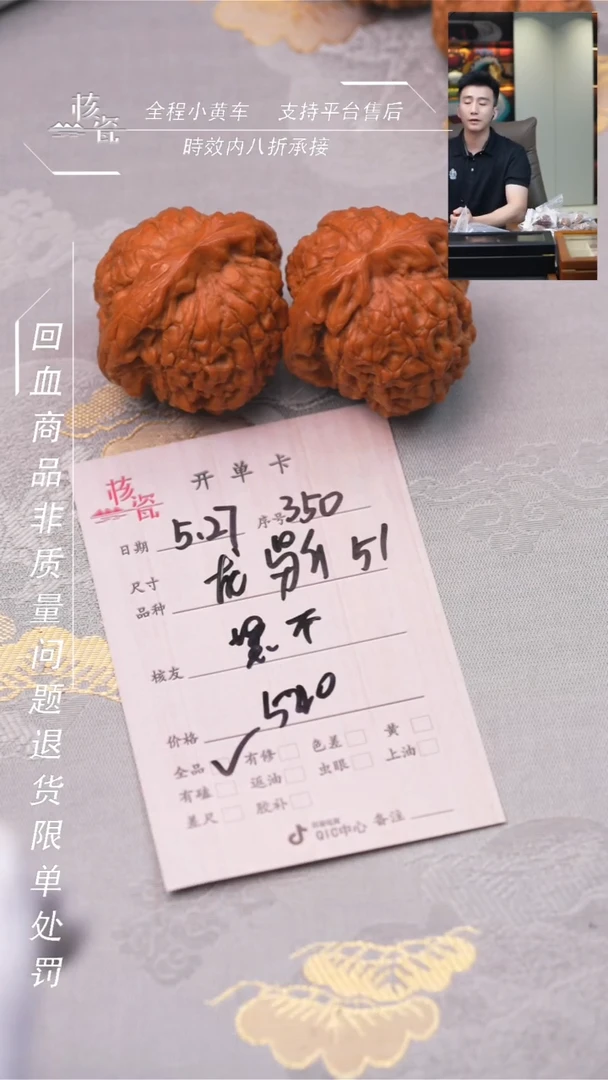 核瓷
全程小黄车 支持平台售后
時效内八折承接
回血商品非质量问题退货限单处罚
核瓷
开单卡
日期 5.27 序号 350
尺寸 51
品种
核友
价格 520
全品 ✓ 有修 色差 黄
有磕 返油 虫眼 上油
差尺 胶补
QIC中心 备注